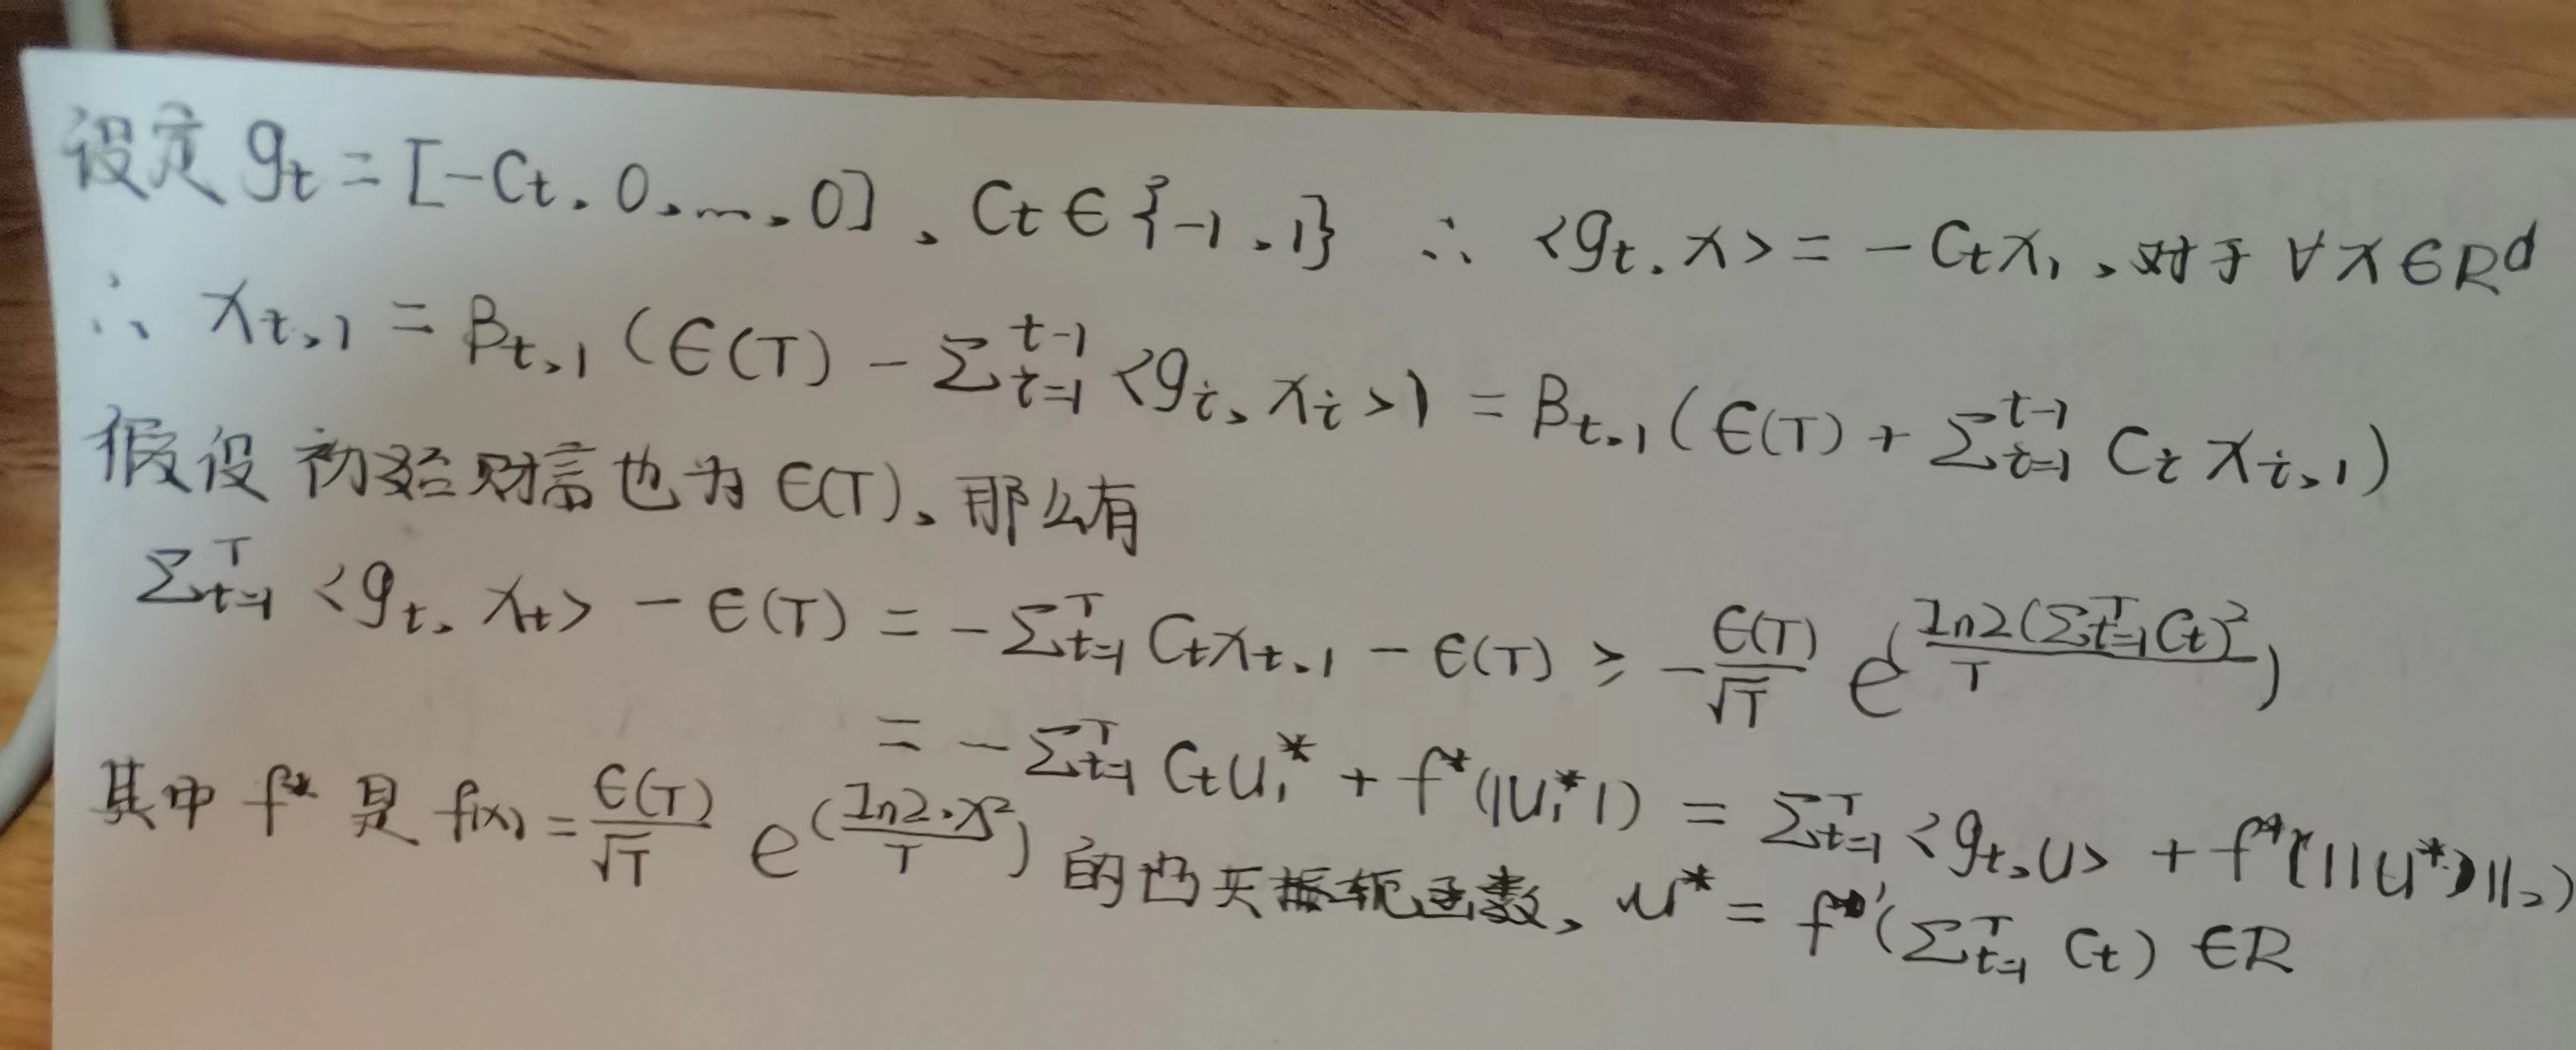 设定 g_t = [-C_t, 0, ..., 0], C_t ∈ {-1, 1} ∴ <g_t, x> = -C_t x_1, 对于 ∀x ∈ R^d
∴ x_{t,1} = β_{t,1} (ϵ(T) - Σ_{i=1}^{t-1} <g_i, x_i>) = β_{t,1} (ϵ(T) + Σ_{i=1}^{t-1} C_i x_{i,1})
假设初始财富也为 ϵ(T), 那么有
Σ_{t=1}^T <g_t, x_t> - ϵ(T) = -Σ_{t=1}^T C_t x_{t,1} - ϵ(T) ≥ -\frac{ϵ(T)}{\sqrt{T}} e^{(\frac{ln2(Σ_{t=1}^T C_t)^2}{T})}
= -Σ_{t=1}^T C_t u_1^* + f^*(|u_1^*|) = Σ_{t=1}^T <g_t, u> + f^*(||u^*)||_2)
其中 f^* 是 f(x) = \frac{ϵ(T)}{\sqrt{T}} e^{(\frac{ln2·x^2}{T})} 的凸共轭函数, u^* = f'(Σ_{t=1}^T C_t) ∈ R